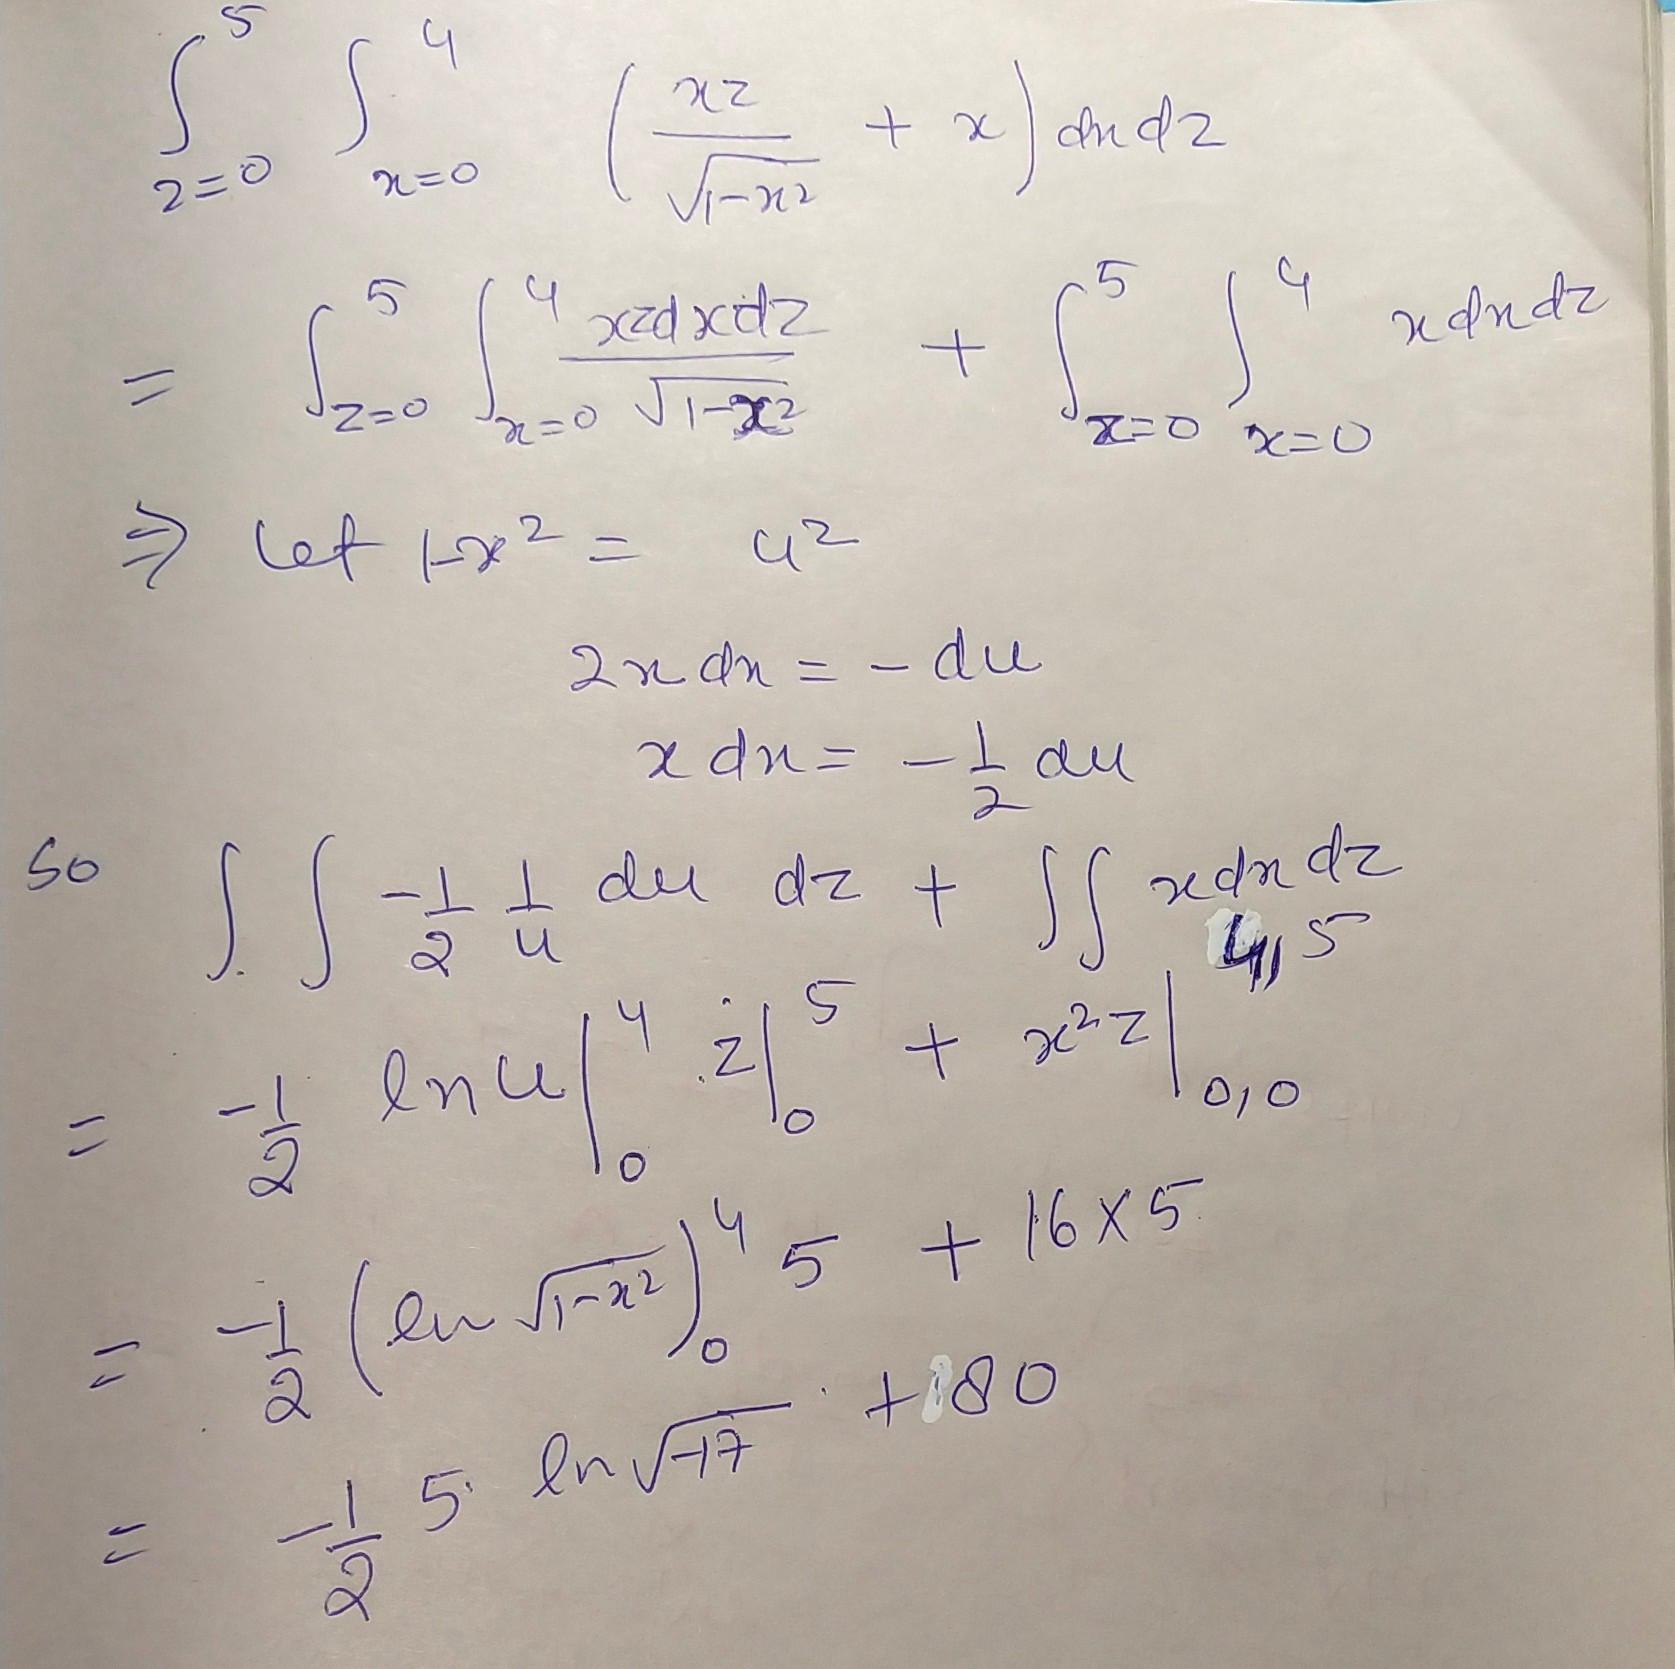 ∫_{z=0}^{5} ∫_{x=0}^{4} (xz/√(1-x²) + x) dx dz
= ∫_{z=0}^{5} ∫_{x=0}^{4} xzdxdz/√(1-x²) + ∫_{z=0}^{5} ∫_{x=0}^{4} x dx dz
⇒ let 1-x² = u²
2x dx = - du
x dx = -1/2 du
So ∫ ∫ -1/2 1/u du dz + ∫∫ x dx dz
= -1/2 ln u |_0^4 z |_0^5 + x² z |_{0,0}^{4,5}
= -1/2 (ln √(1-x²))_0^4 5 + 16 × 5
= -1/2 5 ln √-17 + 80